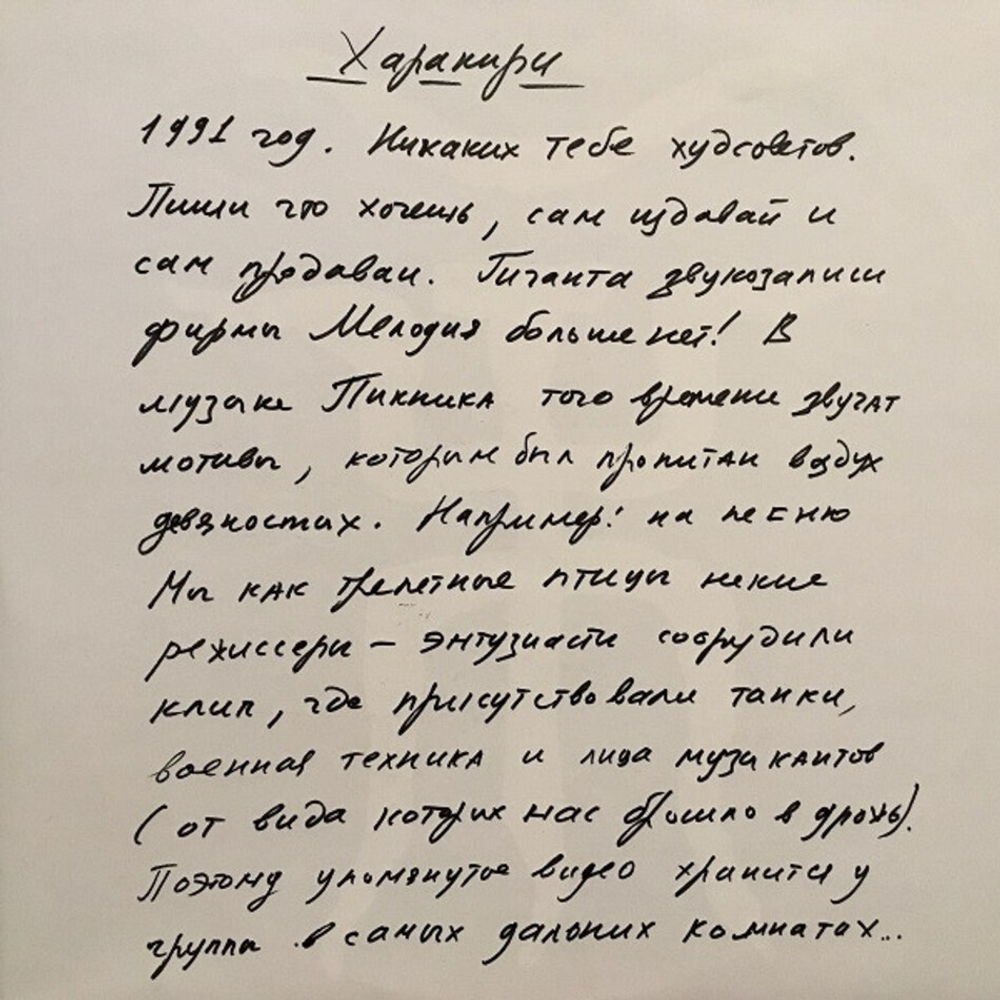 Харакири
1991 год. Никаких тебе худсоветов.
Пиши что хочешь, сам издавай и
сам продаваи. Гиганта звукозаписи
фирмы Мелодия больше нет! В
музыке Пикника того времени звучат
мотивы, которым был пропитан воздух
девяностых. Например: на песню
Мы как трепетные птицы некие
режиссеры – энтузиасты соорудили
клип, где присутствовали танки,
военная техника и лица музыкантов
(от вида которых нас бросило в дрожь).
Поэтому упомянутое видео хранится у
группы в самых дальних комнатах...